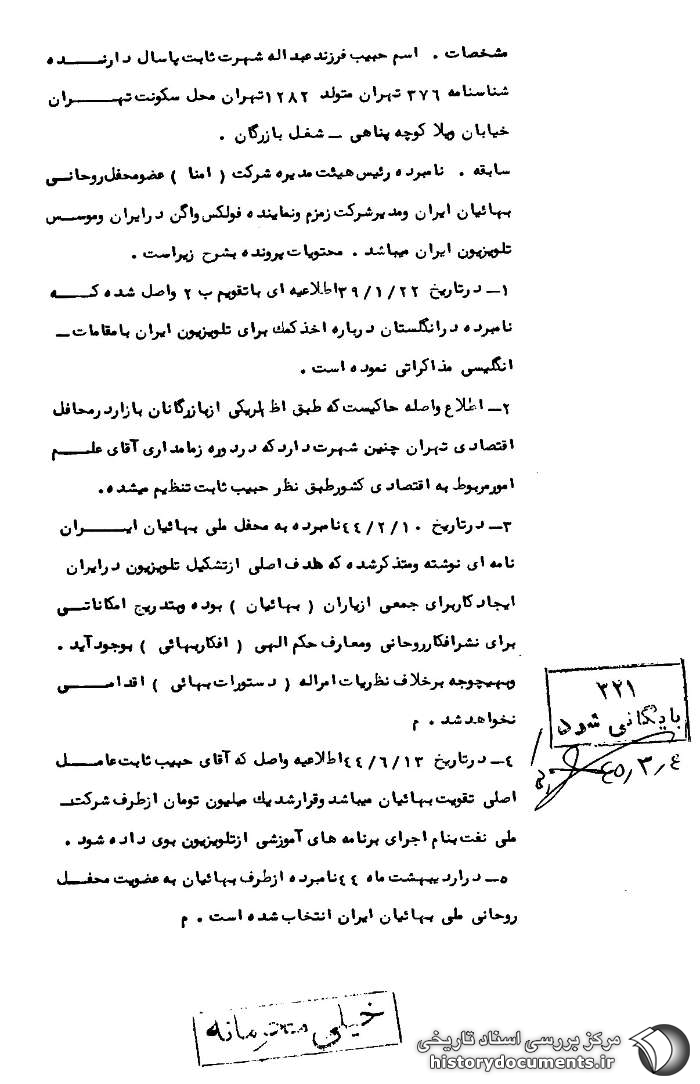 مشخصات . اسم حبیب فرزند عبداله شهرت ثابت پاسال دارنـــده
شناسنامه ۳۷۶ تهران متولد ۱۲۸۲ تهران محل سکونت تهـــران
خیابان ویلا کوچه پناهی ــ شغل بازرگان .
سابقه . نامبرده رئیس هیئت مدیره شرکت ( امنا ) عضو محفل روحانی
بهائیان ایران ومدیر شرکت زمزم ونماینده فولکس واگن درایران وموسس
تلویزیون ایران میباشد . محتویات پرونده بشرح زیراست .
۱ــ درتاریخ ۳۹/۱/۲۲ اطلاعیه ای باتقویم ب ۲ واصل شده کـــه
نامبرده درانگلستان درباره اخذ کمک برای تلویزیون ایران بامقامات ــ
انگلیسی مذاکراتی نموده است .
۲ــ اطلاع واصله حاکیست که طبق اظهار یکی ازبازرگانان بازار درمحافل
اقتصادی تهران چنین شهرت دارد که دردوره زمامداری آقای علـــم
امورمربوط به اقتصادی کشورطبق نظر حبیب ثابت تنظیم میشده.
۳ــ درتاریخ ۴۴/۲/۱۰ نامبرده به محفل ملی بهائیان ایـــران
نامه ای نوشته ومتذکرشده که هدف اصلی ازتشکیل تلویزیون درایران
ایجاد کاربرای جمعی ازیاران ( بهائیان ) بوده وبتدریج امکاناتـــی
برای نشرافکارروحانی ومعارف حکم الهی ( افکاربهائی ) بوجودآید .
وبهیچوجه برخلاف نظریات امراله ( دستورات بهائی ) اقدامـــی
نخواهد شد . م
۴ــ درتاریخ ۴۴/۶/۱۳ اطلاعیه واصل که آقای حبیب ثابت عامـــل
اصلی تقویت بهائیان میباشد وقرارشد یک میلیون تومان ازطرف شرکتــ
ملی نفت بنام اجرای برنامه های آموزشی ازتلویزیون بوی داده شود .
۵ــ دراردیبهشت ماه ۴۴ نامبرده ازطرف بهائیان به عضویت محفـــل
روحانی ملی بهائیان ایران انتخاب شده است . م
۳۲۱
بایگانی شود
۴۵٫۳٫۴
خیلی محرمانه
مرکز بررسی اسناد تاریخی
historydocuments.ir